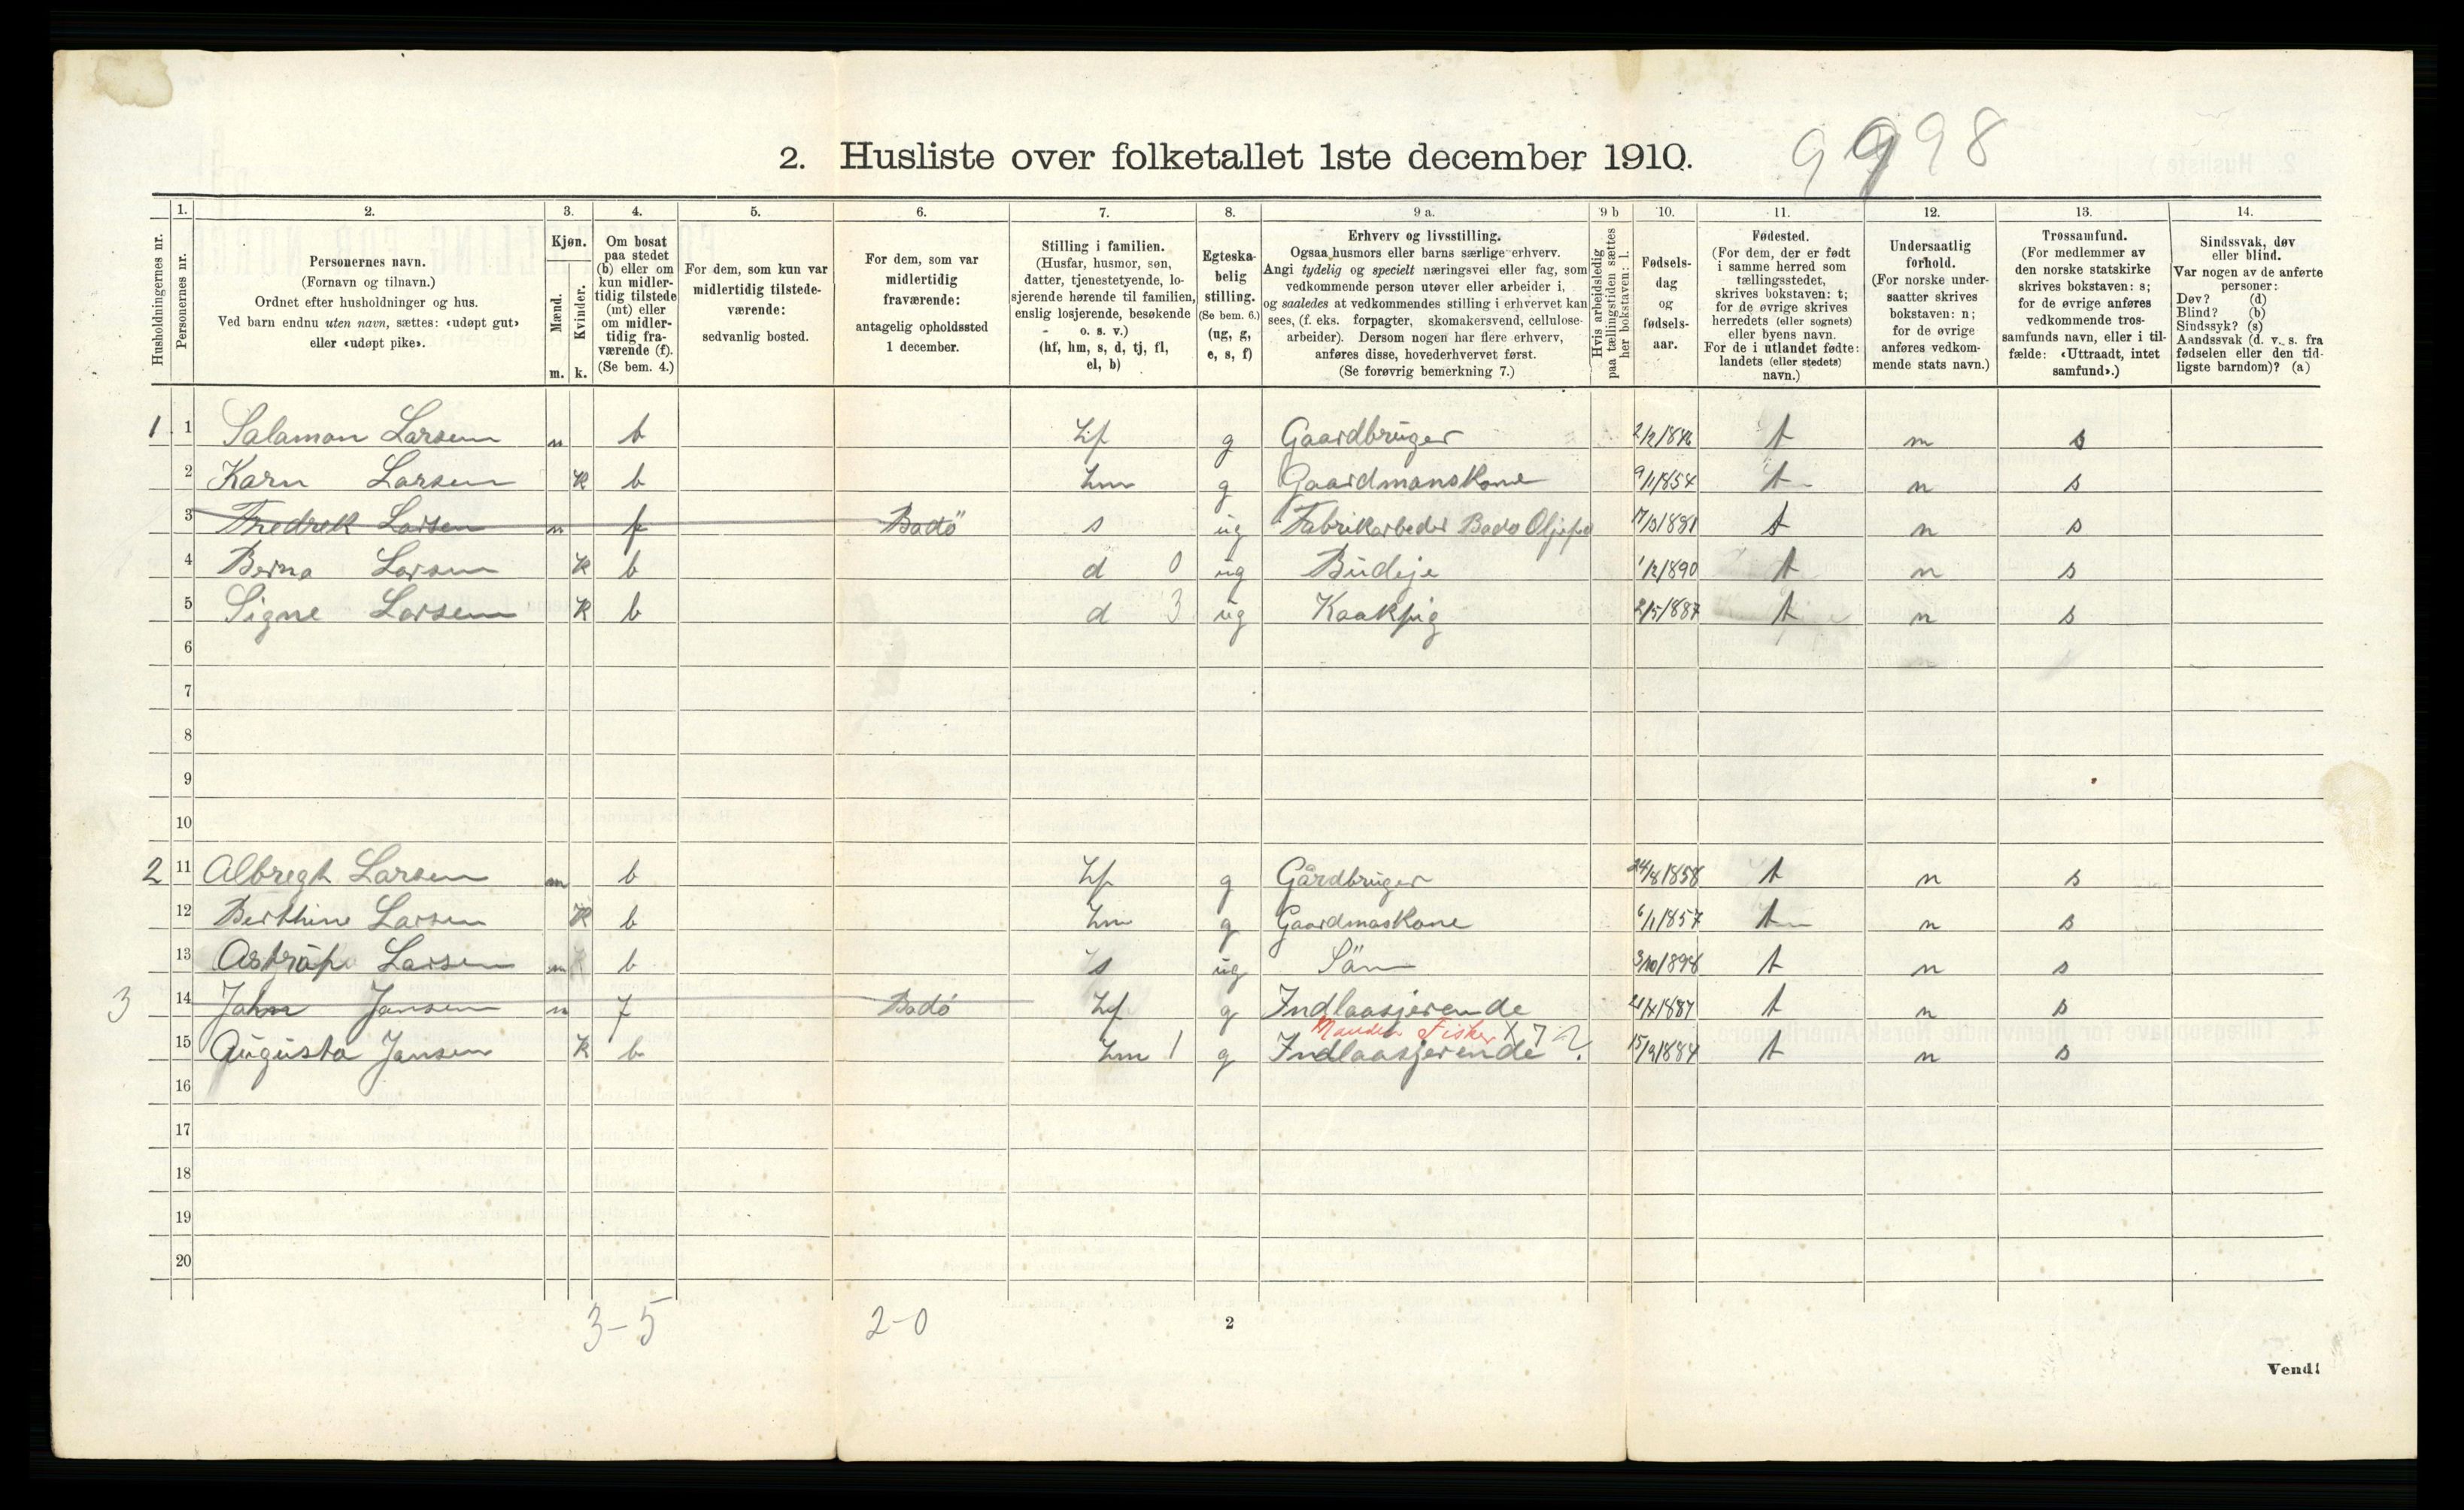 9998
2. Husliste over folketallet 1ste december 1910.
Husholdningernes nr.
1.
Personernes nr.
2.
Personernes navn.
(Fornavn og tilnavn.)
Ordnet efter husholdninger og hus.
Ved barn endnu uten navn, sættes: «udøpt gut»
eller «udøpt pike».
3.
Kjøn.
Mænd.
Kvinder.
m. k.
4.
Om bosat
paa stedet
(b) eller om
kun midler-
tidig tilstede
(mt) eller
om midler-
tidig fra-
værende (f).
(Se bem. 4.)
5.
For dem, som kun var
midlertidig tilstede-
værende:
sedvanlig bosted.
6.
For dem, som var
midlertidig
fraværende:
antagelig opholdssted
1 december.
7.
Stilling i familien.
(Husfar, husmor, søn,
datter, tjenestetyende, lo-
sjerende hørende til familien,
enslig losjerende, besøkende
o. s. v.)
(hf, hm, s, d, tj, fl,
el, b)
8.
Egteska-
belig
stilling.
(Se bem. 6.)
(ug, g,
e, s, f)
9 a.
Erhverv og livsstilling.
Ogsaa husmors eller barns særlige erhverv.
Angi tydelig og specielt næringsvei eller fag, som
vedkommende person utøver eller arbeider i,
og saaledes at vedkommendes stilling i erhvervet kan
sees, (f. eks. forpagter, skomakersvend, cellulose-
arbeider). Dersom nogen har flere erhverv,
anføres disse, hovederhvervet først.
(Se forøvrig bemerkning 7.)
9 b
Hvis arbeidsledig
paa tællingstiden sættes
her bokstaven: l.
10.
Fødsels-
dag
og
fødsels-
aar.
11.
Fødested.
(For dem, der er født
i samme herred som
tællingsstedet,
skrives bokstaven: t;
for de øvrige skrives
herredets (eller sognets)
eller byens navn.
For de i utlandet fødte:
landets (eller stedets)
navn.)
12.
Undersaatlig
forhold.
(For norske under-
saatter skrives
bokstaven: n;
for de øvrige
anføres vedkom-
mende stats navn.)
13.
Trossamfund.
(For medlemmer av
den norske statskirke
skrives bokstaven: s;
for de øvrige anføres
vedkommende tros-
samfunds navn, eller i til-
fælde: «Uttraadt, intet
samfund».)
14.
Sindssvak, døv
eller blind.
Var nogen av de anførte
personer:
Døv? (d)
Blind? (b)
Sindssyk? (s)
Aandssvak (d. v. s. fra
fødselen eller den tid-
ligste barndom)? (a)
1 1 Salamon Larsen m b hf g Gaardbruger t n s
2 Karn Larsen k b hm g Gaardmanskone 9/1 1854 t n s
3 Fredrek Larsen m f Bodö s ug Fabrikarbeder Bodø 17/3 1881 t n s
4 Berna Larsen k b d 0 ug Budeje 1/2 1890 t n s
5 Signe Larsen k b d 3 ug Kaakpig 2/5 1887 t n s
6
7
8
9
10
2 11 Albregt Larsen m b hf g Gårdbruger 24/8 1858 t n s
12 Berthine Larsen k b hm g Gaardmaskone 6/1 1857 t n s
13 Larsen m b s ug Sön 3/10 1898 t n s
3 14 Jahn Jansen m f Bodö hf g Indlaasjerende t n s
Manden Fisker x 7 2.
15 Augusta Jansen k b hm 1 g Indlaasjerende 15/9 1884 t n s
16
17
18
19
20
3-5 2-0
2
Vend!